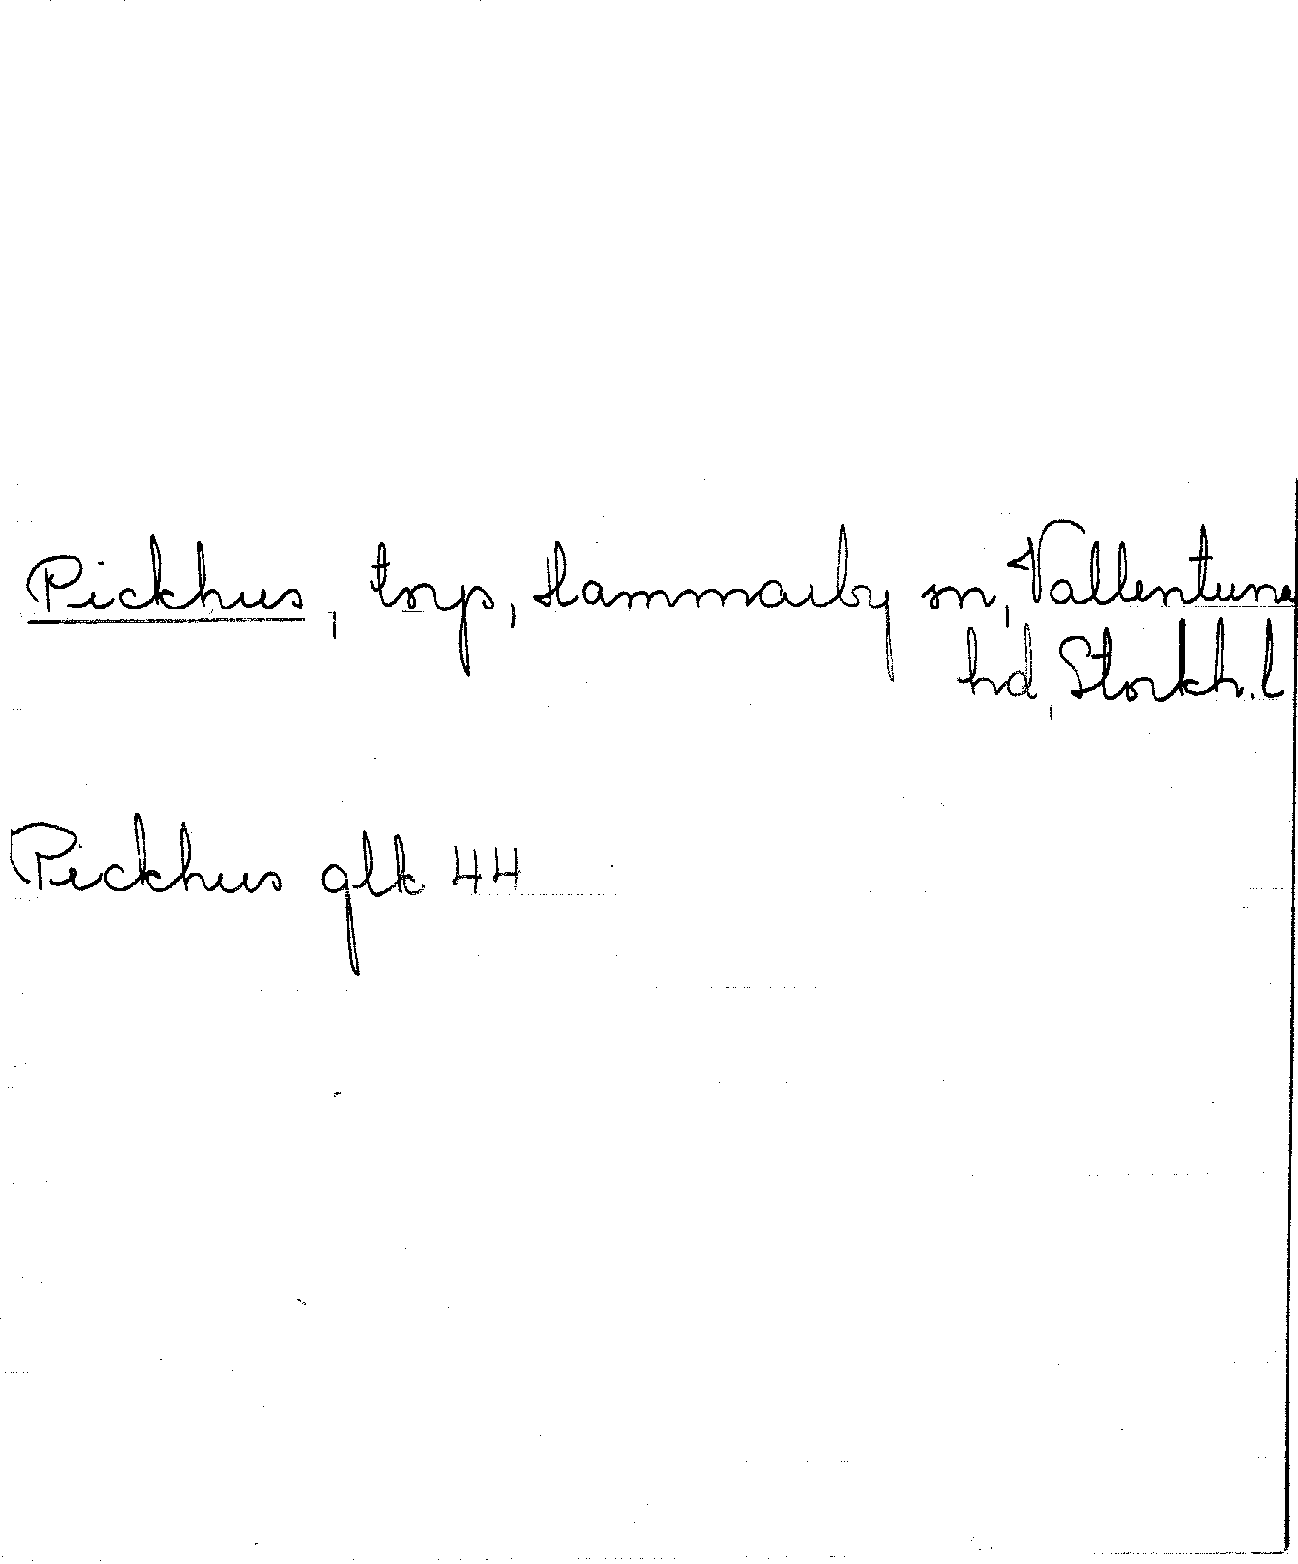 Pickhus, torp, Hammarby sn, Vallentuna
hd, Stockh. l
Pickhus glk 44